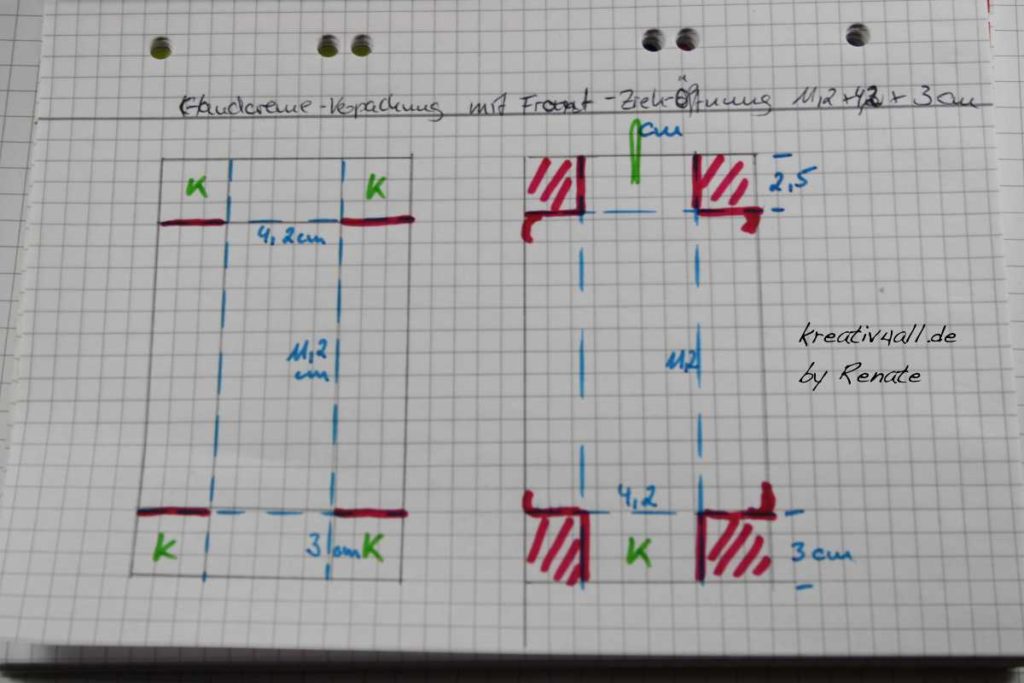 Handcreme-Verpackung mit Front-Zieh-Öffnung 11,2 + 4,2 + 3 cm
K K cm
2,5
4,2cm
11,2
cm
11,2
kreativ4all.de
by Renate
4,2
K 3 cm K K 3 cm